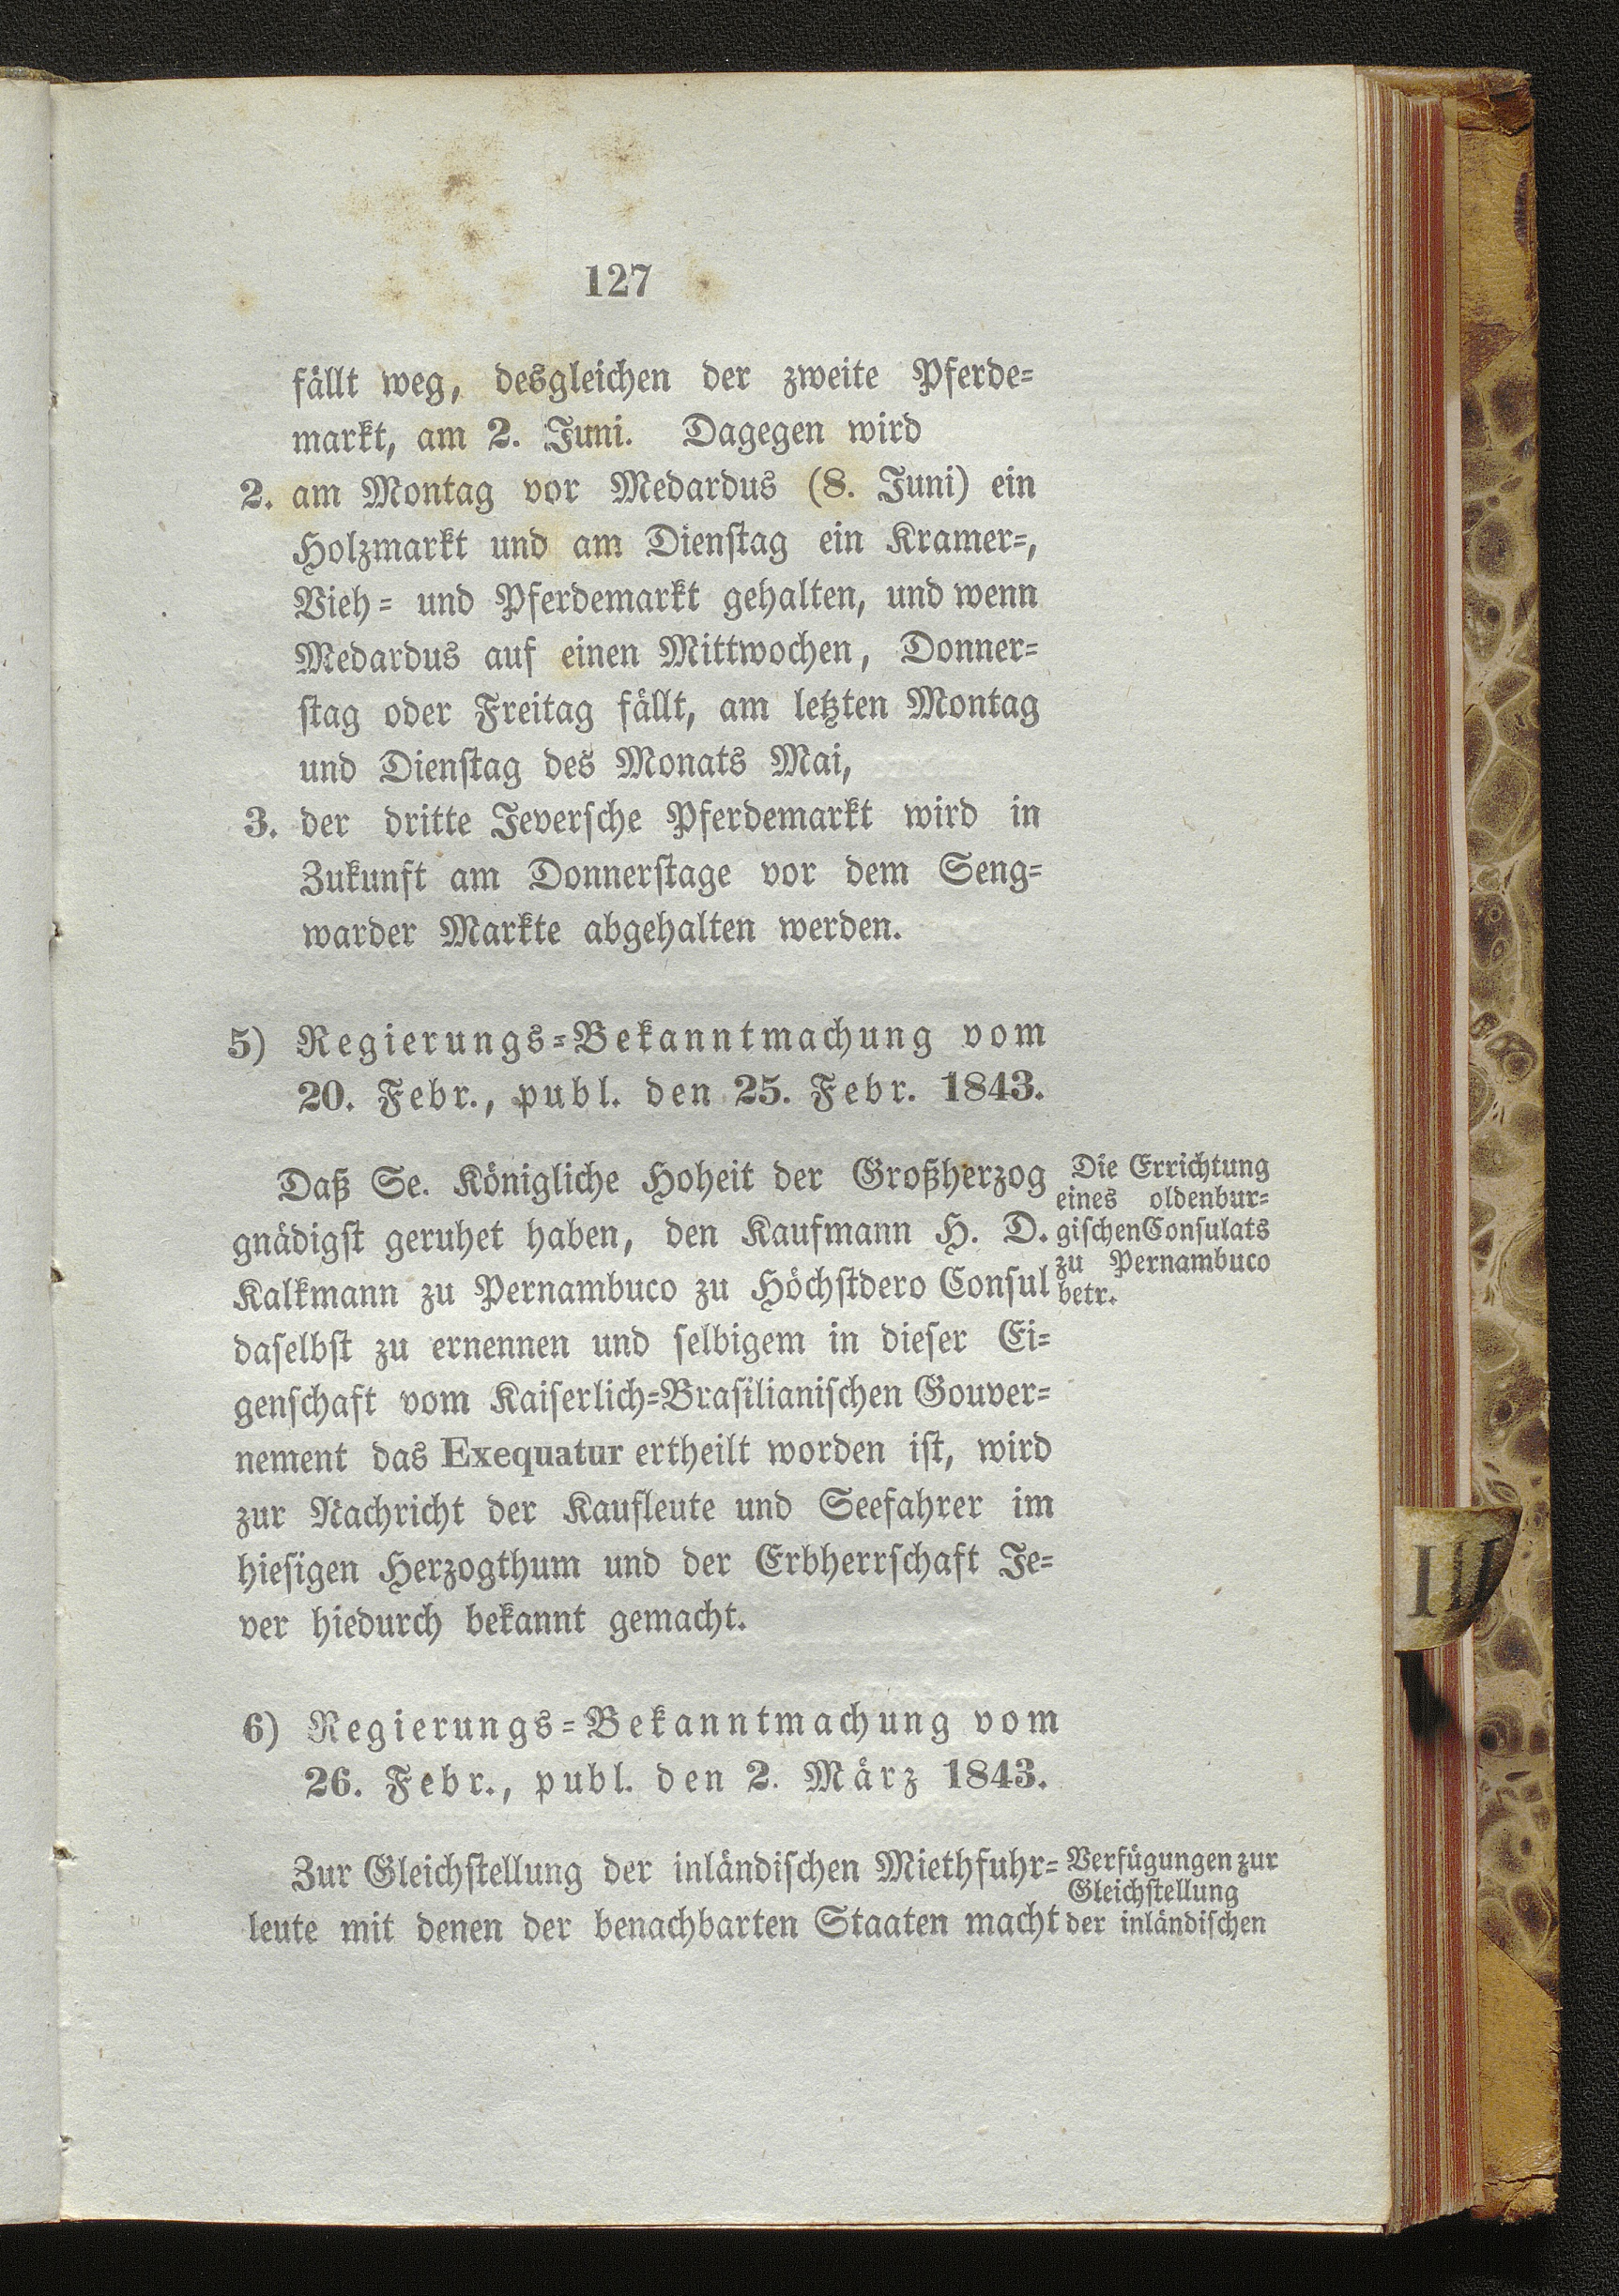 127
fällt weg, desgleichen der zweite Pferde=
markt, am 2. Juni. Dagegen wird
2. am Montag vor Medardus (8. Juni) ein
Holzmarkt und am Dienstag ein Kramer=,
Vieh= und Pferdemarkt gehalten, und wenn
Medardus auf einen Mittwochen, Donner=
stag oder Freitag fällt, am letzten Montag
und Dienstag des Monats Mai,
3. der dritte Jeversche Pferdemarkt wird in
Zukunft am Donnerstage vor dem Seng=
warder Markte abgehalten werden.
5) Regierungs=Bekanntmachung vom
20. Febr., publ. den 25. Febr. 1843.
Daß Se. Königliche Hoheit der Großherzog
gnädigst geruhet haben, den Kaufmann H. D.
Kalkmann zu Pernambuco zu Höchstdero Consul
daselbst zu ernennen und selbigem in dieser Ei=
genschaft vom Kaiserlich=Brasilianischen Gouver=
nement das Exequatur ertheilt worden ist, wird
zur Nachricht der Kaufleute und Seefahrer im
hiesigen Herzogthum und der Erbherrschaft Je=
ver hiedurch bekannt gemacht.
Die Errichtung
eines oldenbur=
gischen Consulats
zu Pernambuco
betr.
6) Regierungs=Bekanntmachung vom
26. Febr., publ. den 2. März 1843.
Zur Gleichstellung der inländischen Miethfuhr=
leute mit denen der benachbarten Staaten macht
Verfügungen zur
Gleichstellung
der inländischen
III